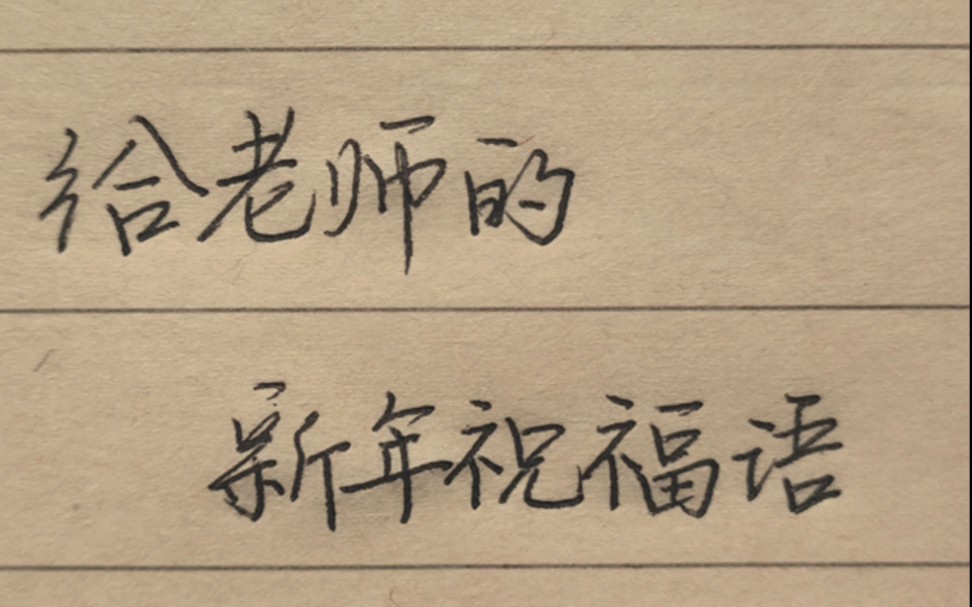 给老师的
新年祝福语